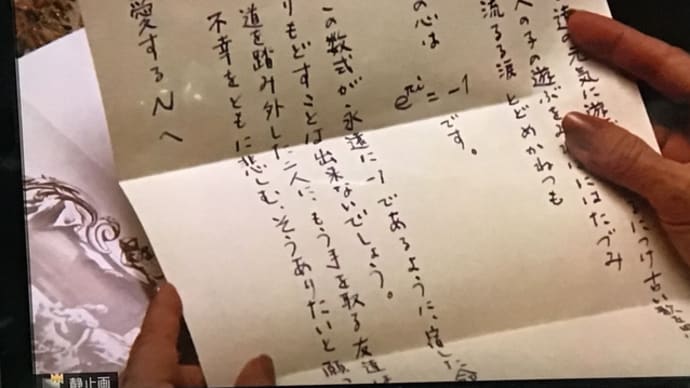 達の元気に遊 につけ古い歌を
人の子の遊ぶを にはたづみ
流るる涙とどめかねつも
の心は
e^πi = -1
です。
この数式が永遠に-1であるように、宿した命
りもどすことは出来ないでしょう。
道を踏み外した二人に、もう手を取る友達は
不幸をともに悲しむ、そうありたいと願っ
愛するNへ
静止画